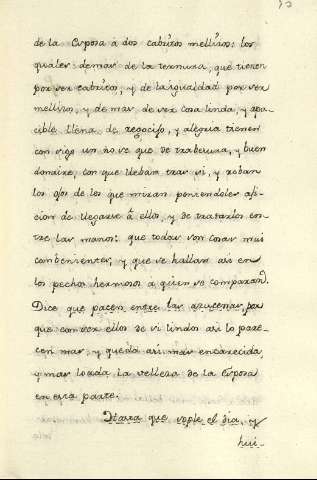 de la Esposa à dos cabritos mellizos: los
quales demas de la ternura, que tienen
por ser cabritos, y de la igualdad por ser
mellizos, y de mas de ser cosa linda, y apa-
cible llena de regocijo, y alegria tienen
con sigo un no se que de trabesura, y buen
donaire, con que lleban tras si, y roban
los ojos de los que miran poniendoles afi-
cion de llegarse â ellos, y de tratarlos en-
tre las manos: que todas son cosas mui
combenientes, y que se hallan asi en
los pechos hermosos a quien se comparan.
Dice que pacen entre las azucenas, por
que con ser ellos de si lindos asi lo pare-
cen mas, y queda asi mas encarecida,
y mas loada la velleza de la Esposa
en esta parte.
Hasta que sople el dia, y
hui-